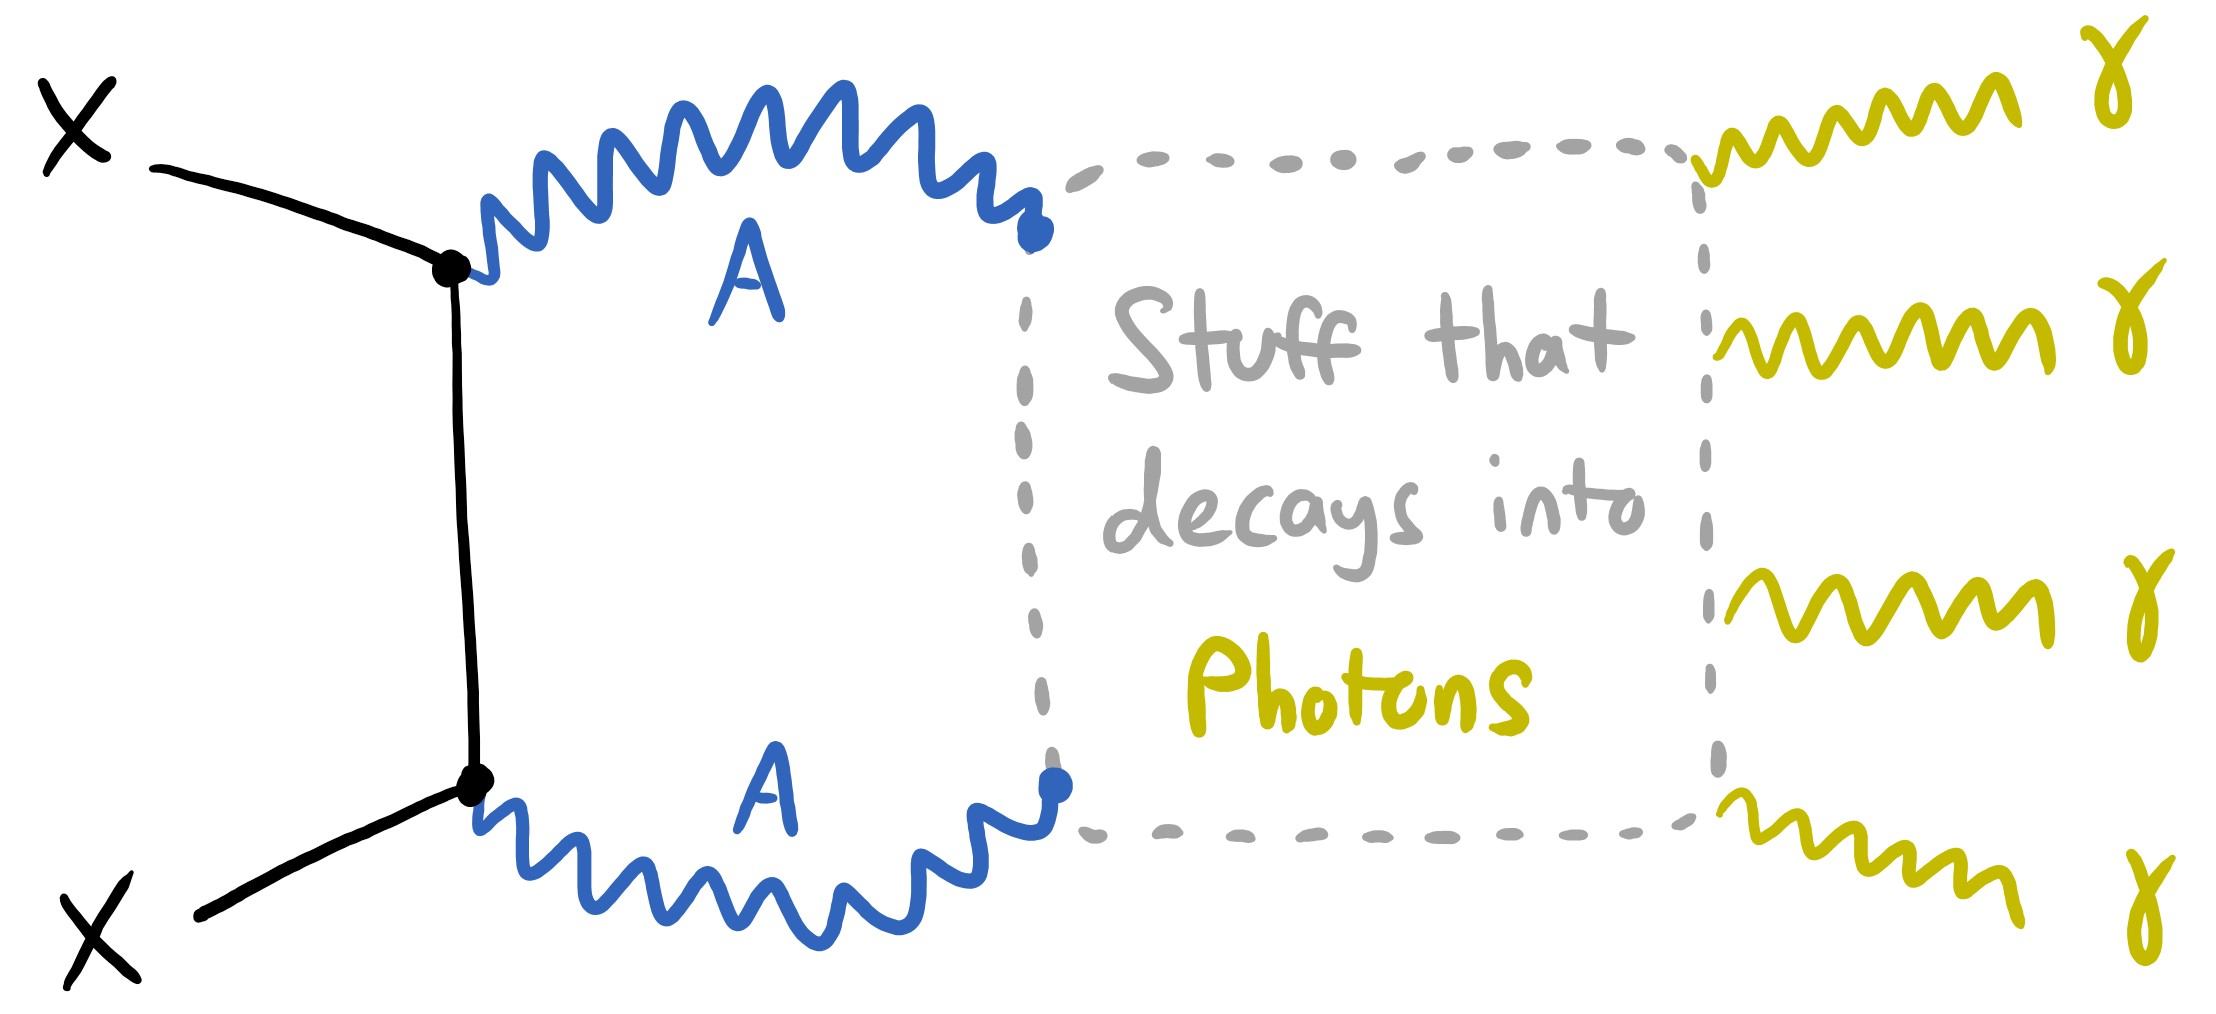 X
γ
A
γ
Stuff that
decays into
γ
Photons
A
X
γ